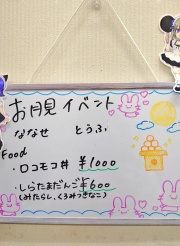 お月見イベント
ななせ とうふ
Food
・ロコモコ丼 ¥1000
・しらたまだんご ¥600
(みたらし、くるみつきなこ)